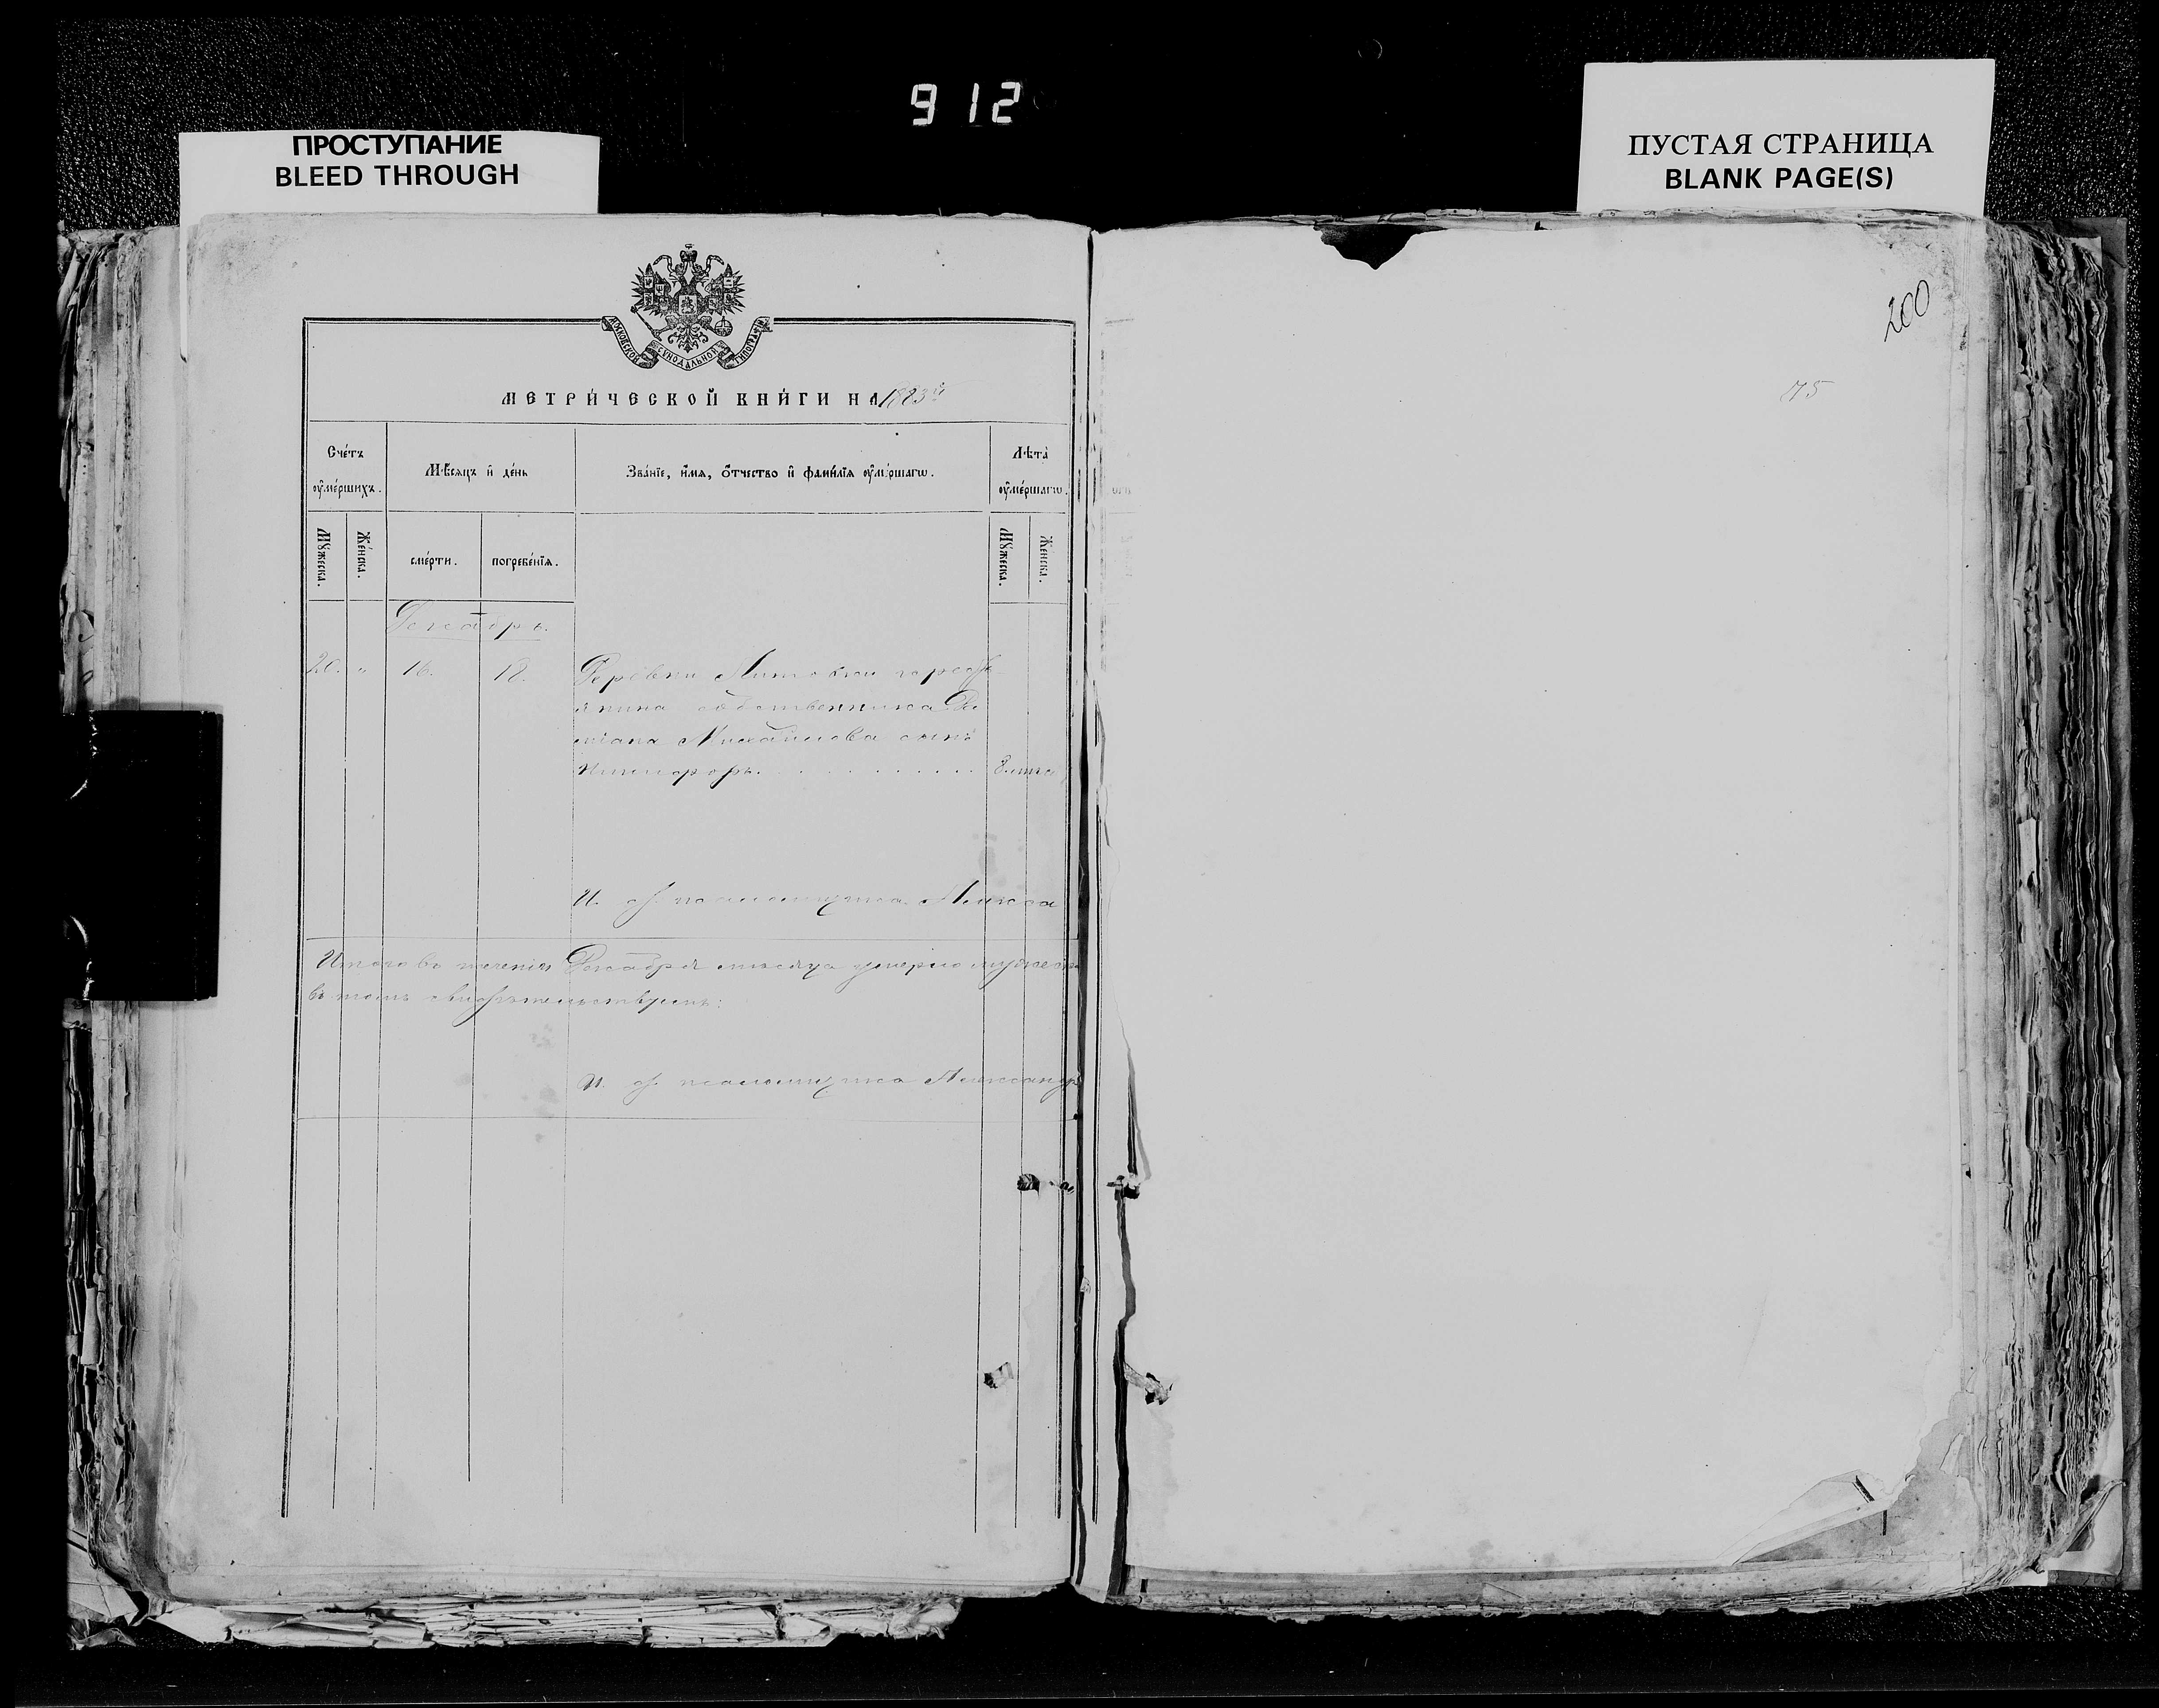 912
ПРОСТУПАНИЕ
BLEED THROUGH
ПУСТАЯ СТРАНИЦА
BLANK PAGE(S)
200
75
МОСКОВСКОЙ СѴНОДАЛЬНОЙ ТИПОГРАФІИ
МЕТРИ́ЧЕСКОЙ КНИ́ГИ НА 1883й
Сче́тъ ᲂу҆ме́ршихъ.
Мѣ́сяцъ и҆ де́нь
Зва́нїе, и҆́мѧ, ѻ҆́тчество и҆ фами́лїѧ ᲂу҆ме́ршагѡ.
Лѣ́та ᲂу҆ме́ршагѡ.
Мꙋ́жеска.
Же́нска.
сме́рти.
погребе́нїѧ.
Мꙋ́жеска.
Же́нска.
Декабрь.
20. " 16. 18. Деревни
янина собственника Де
міана Михайлова сынъ
Никифоръ. 8. лѣтъ
И. д. псаломщика Алекса
Итого въ теченіи Декабря мѣсяца умерло мужеска
въ томъ свидѣтельствуемъ:
И. д. псаломщика Александр